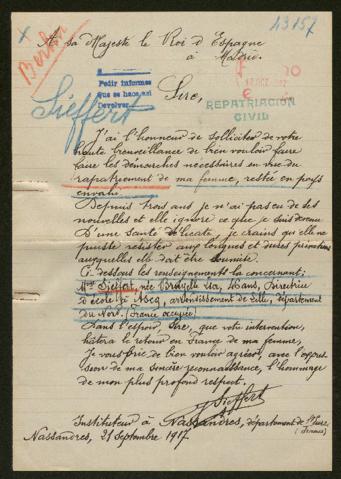 13157
Berlin
A sa Majesté le Roi d'Espagne
à Madrid.
Pedir informes
que se hace, así
Devolver
Sieffert
Sire,
REPATRIACION
CIVIL
J'ai l'honneur de solliciter de votre
haute bienveillance de bien vouloir faire
faire les démarches nécessaires en vue du
rapatriement de ma femme, restée en pays
envahi.
Depuis trois ans je n'ai pas eu de ses
nouvelles et elle ignore ce que je suis devenu
D'une santé délicate, je crains qu'elle ne
puisse résister aux longues et dures privations
auxquelles elle doit être soumise.
Ci-dessous les renseignements la concernant:
Mme Sieffert, née
ans, Directrice
d'école à Ascq, arrondissement de Lille, département
du Nord (France occupée)
Dans l'espoir, Sire, que votre intervention,
hâtera le retour en France de ma femme,
Je vous prie de bien vouloir agréer, avec l'expres-
sion de ma sincère reconnaissance, l'hommage
de mon plus profond respect.
Sieffert
Instituteur à Nassandres, département de l'Eure,
Nassandres, 21 Septembre 1917.